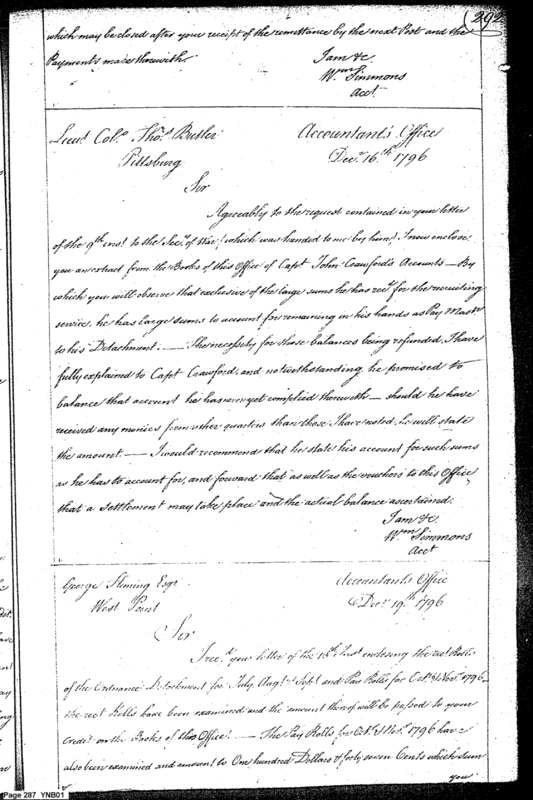 292
which may be closed after your receipt of the remittance by the next Post and the
Payments made therewith.
I am &c.
Wm Simmons
Acct.
Lieut. Colo. Thos. Butler
Pittsburg
Accountant's Office
Decr. 16th 1796
Sir
Agreeably to the request contained in your letter
of the 9th inst. to the Secy. of War (which was handed to me by him) I now enclose
you an extract from the Books of this Office of Capt. John Crawford's Accounts — By
which you will observe that exclusive of the large sums he has recd. for the recruiting
service, he has large sums to account for remaining in his hands as Pay Mastr
to his Detachment. — The necessity for those balances being refunded, I have
fully explained to Capt Crawford, and notwithstanding he promised to
balance that account he has never yet complied therewith — should he have
received any monies from other quarters than those I have noted, he will state
the amount. — I would recommend that he state his account for such sums
as he has to account for, and forward that as well as the vouchers to this Office,
that a settlement may take place and the actual balance ascertained.
I am &c.
Wm Simmons
Acct
George Fleming Esqr
West Point
Accountant's Office
Decr. 19th 1796
Sir
I recd. your letter of the 10th Inst. enclosing the rect Rolls
of the Ordnance Detachment for July, Augt. & Sept. and Pay Rolls for Octr. & Novr. 1796
the rect Rolls have been examined and the amount thereof will be passed to your
credit on the Books of this Office. — The Pay Rolls for Octr. & Novr. 1796 have
also been examined and amount to One Hundred Dollars & forty seven Cents which sum
you
Page 287 YNB01